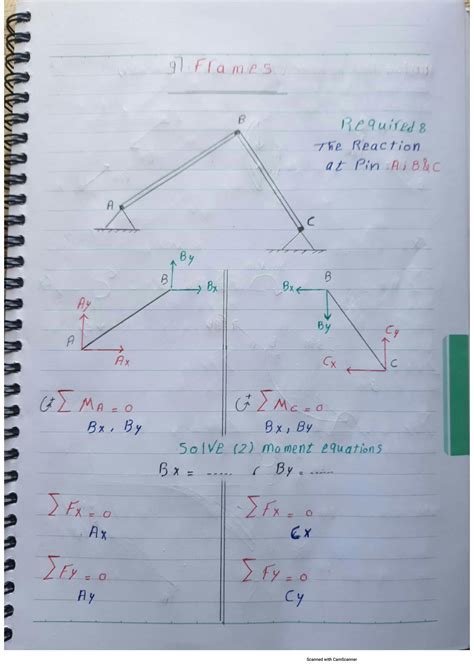 9) Frames
B
Required:
The Reaction
at Pin A, B & C
A
C
By
B
Bx
Ay
A
Ax
B
Bx
By
Cy
Cx
C
∑ MA = 0
Bx, By
+ ∑ MC = 0
Bx, By
Solve (2) moment equations
Bx = ...... , By = ......
∑ Fx = 0
Ax
∑ Fx = 0
Cx
∑ Fy = 0
Ay
∑ Fy = 0
Cy
Scanned with CamScanner